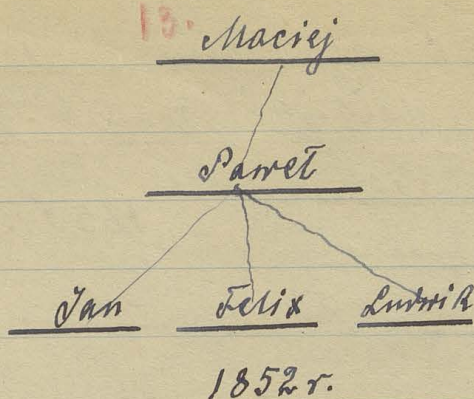 13.
Maciej
Paweł
Jan Felix Ludwik
1852 r.